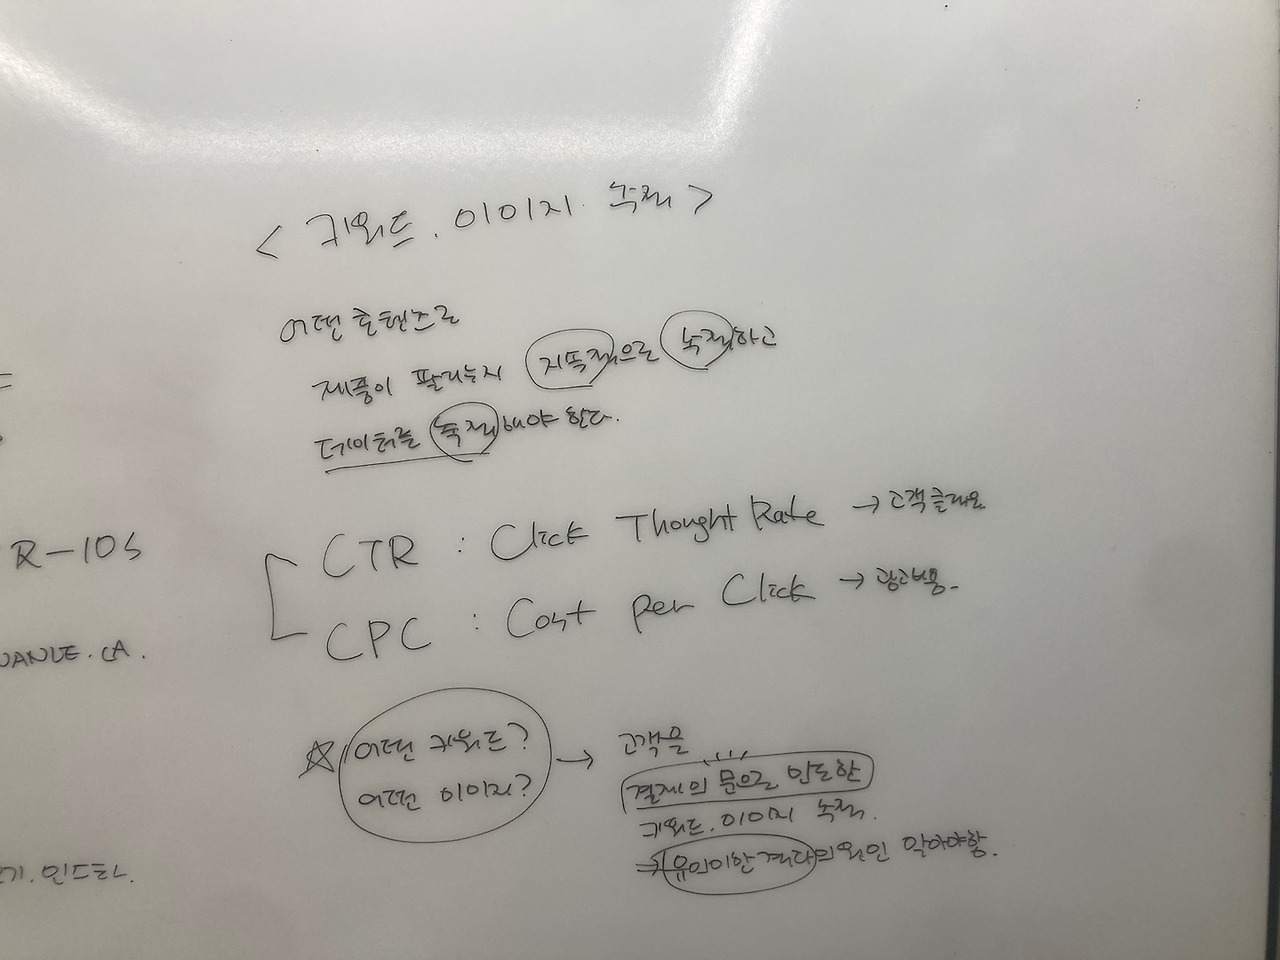 < 키워드. 이미지 누적 >
어떤 콘텐츠로
제품이 팔리는지 지속적으로 누적하고
데이터를 축적해야 한다.
CTR : Click Thought Rate → 고객클릭
CPC : Cost per Click → 광고비용.
☆ 어떤 키워드? → 고객을
어떤 이미지?
결제의 문으로 인도한
키워드. 이미지 누적.
→ 유의미한 결과의 원인 알아야함.
R-10S
UANLE.CA.
기. 인스타.